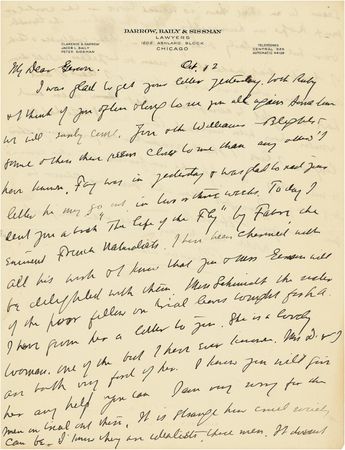 DARROW, BAILY & SISSMAN
LAWYERS
1202 ASHLAND BLOCK
CHICAGO
CLARENCE S. DARROW
JACOB L. BAILY
PETER SISSMAN
TELEPHONES
CENTRAL 925
AUTOMATIC
My Dear
Oct 12
I was glad to get your letter yesterday. Both Ruby
& I think of you often & long to see you all again And
we will surely come. You & the Williams
some others there seem closer to me than any others I
have known. Fay was in yesterday & was glad to read your
letter he may go out in two or three weeks. Today I
sent you a book "The Life of the Fly" by Fabre, the
eminent French Naturalist. I have been charmed with
all his work & know that you & Mrs will
be delighted with them. Miss Schmidt the sister
of the poor fellow on trial leaves tonight
I have given her a letter to you. She is a lovely
woman. One of the best I have ever known. Mrs D. & I
are both very fond of her. I know you will give
her any help you can I am very sorry for the
men on trial out there. It is strange how cruel society
can be. I know they are idealists, these men. It doesn't